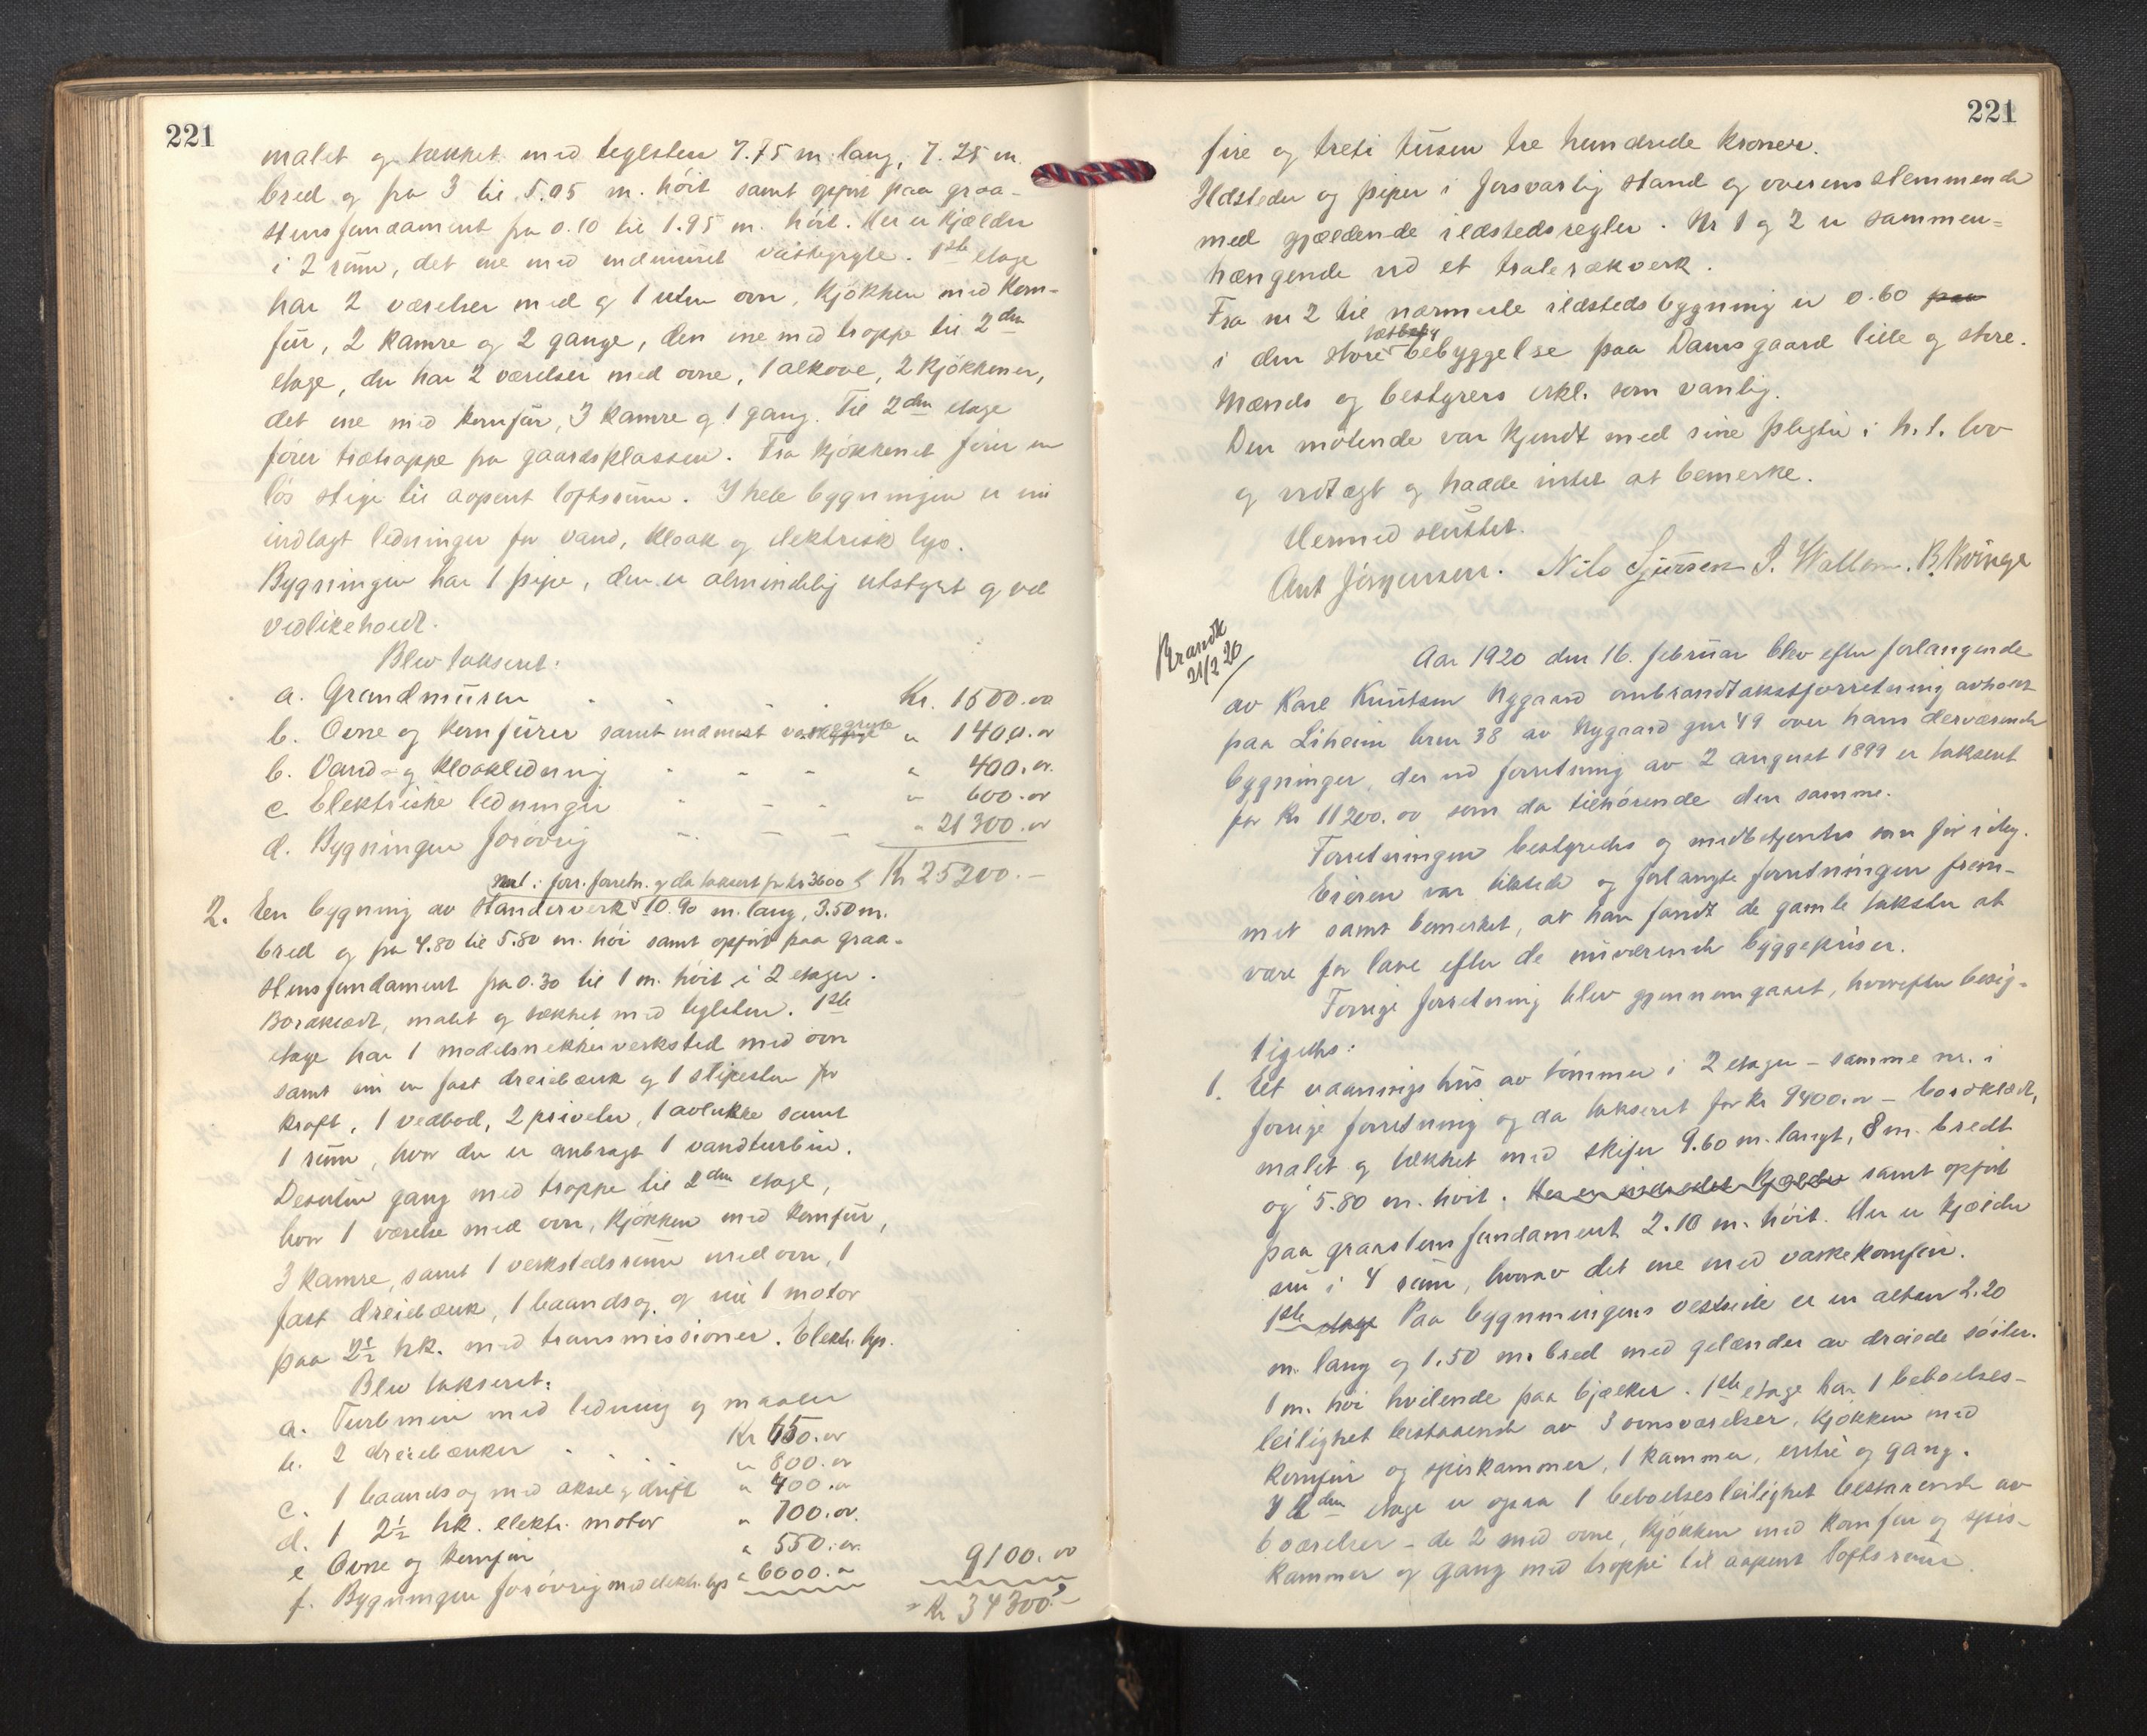 221
malet og tækket med teglsten 7.75 m. lang, 7.25 m.
bred og fra 3 til 5.05 m. höit samt opført paa graa-
stensfundament fra 0.10 til 1.95 m. höit. Her er kjælder
i 2 rum, det ene med indmuret vaskegryte. 1ste etage
har 2 værelser med og 1 uten ovn, kjökken med kom-
fur, 2 kamre og 2 gange, den ene med trappe til 2den
etage, der har 2 værelser med ovne, 1 alkove, 2 kjökkener,
det ene med komfur, 3 kamre og 1 gang. Til 2den etage
förer trætrappe fra gaardsplassen. Fra kjökkenet förer en
lös stige til aapent loftsrum. I hele bygningen er nu
indlagt ledninger for vand, kloak og elektrisk lys.
Bygningen har 1 pipe, den er almindelig utstyrt og vel
vedlikeholdt.
Blev takseret:
a. Grundmuren Kr. 1500.oo
b. Ovne og komfurer samt indmuret vaskegryte " 1400.oo
b. Vand- og kloakledning " 400.oo
c. Elektriske ledninger " 600.oo
d. Bygningen forövrig " 21300.oo
Kr 25200.-
nr 1 i forr. forretn. og da taksert for kr 3600
2. En bygning av standerverk 10.90 m. lang, 3.50 m.
bred og fra 4.80 til 5.80 m. höi samt opfört paa graa-
stensfundament fra 0.30 til 1 m. höit i 2 etager.
Bordklædt, malet og tækket med teglsten. 1ste
etage har 1 modelsnekkerverksted med ovn
samt nu en fast dreiebænk og 1 slipesten for
kraft, 1 vedbod, 2 priveter, 1 avlukke samt
1 rum, hvor der er anbragt 1 vandturbin.
Desuten gang med trappe til 2den etage,
hvor 1 værelse med ovn, kjökken med komfur,
3 kamre, samt 1 verkstedsrum med ovn, 1
fast dreiebænk, 1 baandsag og nu 1 motor
paa 2½ hk. med transmissioner. Elektr. lys.
Blev takseret:
a. Turbinen med ledning og maaler Kr 650.oo
b. 2 dreiebænker " 800.oo
c. 1 baandsag med aksel og drift " 400.oo
d. 1 2½ hk. elektr. motor " 700.oo
e Ovne og komfur " 550.oo
f. Bygningen forövrig med elektr. lys " 6000.oo 9100.oo
Kr 34300.-
221
fire og treti tusen tre hundrede kroner.
Ildsteder og piper i forsvarlig stand og overensstemmende
med gjældende ildstedsregler. Nr 1 og 2 er sammen-
hængende ved et tralerækverk.
Fra nr 2 til nærmeste ildstedsbygning er 0.60 paa
i den store tætbebyg bebyggelse paa Damsgaard lille og store.
Mænds og bestyrers erkl. som vanlig.
Den mötende var kjendt med sine pligter i h. t. lov
og vedtægt og hadde intet at bemerke.
Hermed sluttet.
Ant Jörgensen. Nils Sjursen J. Wallem. B. Kvinge
Brandk
21/2 20
Aar 1920 den 16. februar blev efter forlangende
av Kare Knutsen Nygaard ombrandtakstforretning avholdt
paa Liheim brnr 38 av Nygaard gnr 49 over hans derværende
bygninger, der ved forretning av 2 august 1899 er takseret
for kr 11200.oo som da tilhörende den samme.
Forretningen bestyredes og medbetjentes som för i dag.
Eieren var tilstede og forlangte forretningen frem-
met samt bemerket, at han fandt de gamle takster at
være for lave efter de nuværende byggepriser.
Forrige forretning blev gjennemgaaet, hvorefter besig-
tigedes:
1. Et vaaningshus av tömmer i 2 etager - samme nr. i
forrige forretning og da takseret for kr 9400.oo - bordklædt,
malet og tækket med skifer 9.60 m. langt, 8 m. bredt
og 5.80 m. höit. Her er indredet kjælder samt opfört
paa graastensfundament 2.10 m. höit. Her er kjælder
nu i 4 rum, hvorav det ene med vaskekomfur.
1ste etage Paa bygningens vestside er en altan 2.20
m. lang og 1.50 m. bred med gelænder av dreiede söiler.
1 m. höi hvilende paa bjælker. 1ste etage har 1 beboelses-
leilighet bestaaende av 3 ovnsværelser, kjökken med
komfur og spiskammer, 1 kammer, entré og gang.
I 2den etage er ogsaa 1 beboelsesleilighet bestaaende av
6 værelser - de 2 med ovne, kjökken med komfur og spis-
kammer og gang med trappe til aapent loftsrum.